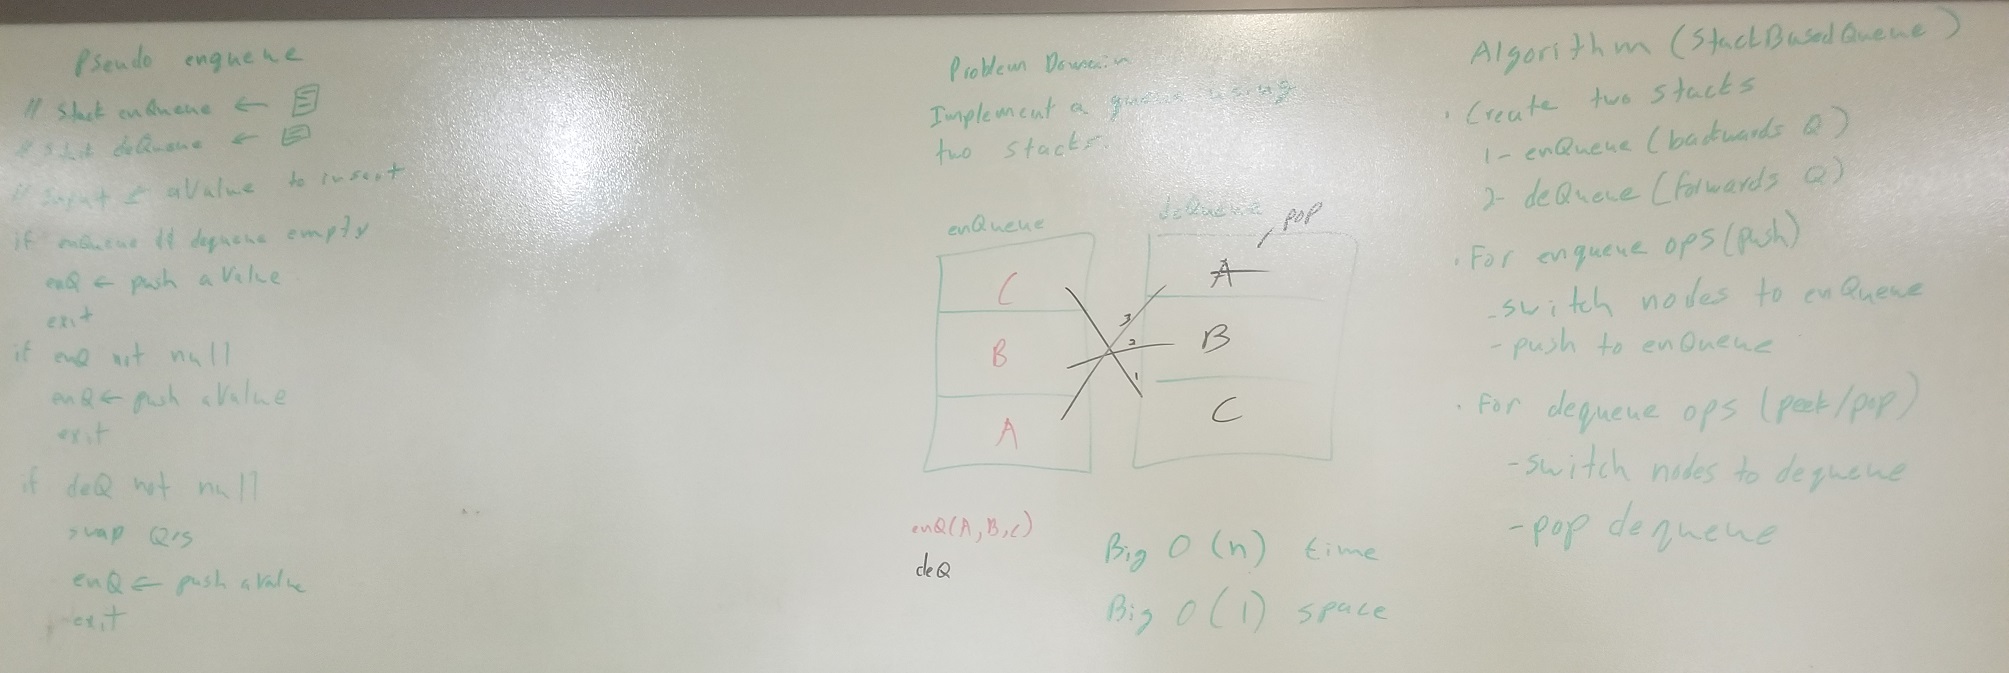 Pseudo enqueue
// Stack enQueue ←
// Stack deQueue ←
// input ← aValue to insert
if enQueue && dequeue empty
enQ ← push aValue
exit
if enQ not null
enQ ← push aValue
exit
if deQ not null
swap Q's
enQ ← push aValue
exit
Problem Domain
Implement a queue using
two stacks.
enQueue
C
B
A
deQueue
pop
A
B
C
3
2
1
enQ(A,B,C)
deQ
Big O (n) time
Big O (1) space
Algorithm (StackBasedQueue)
. Create two stacks
1- enQueue (backwards Q)
2- deQueue (forwards Q)
. For enqueue ops (push)
- switch nodes to enQueue
- push to enQueue
. For dequeue ops (peek/pop)
- switch nodes to dequeue
- pop dequeue